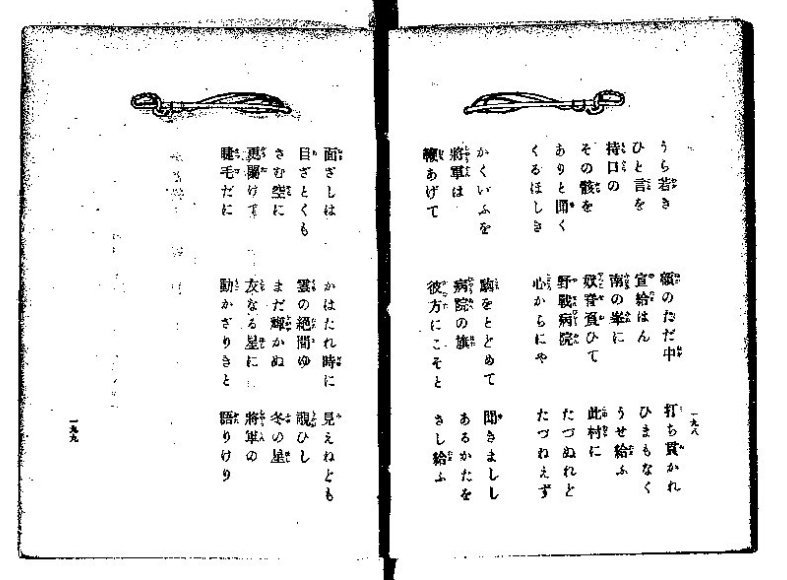 一九八
うら若き 額のただ中 打ち貫かれ
ひと言を 宣給はん ひまもなく
持口の 南の峯に うせ給ふ
その骸を 脊負ひて 此村に
ありと聞く 野戰病院 たづぬれど
くるほしき 心からにや たづねえず
かくいふを 駒をとどめて 聞きましし
將軍は 病院の旗 あるかたを
鞭あげて 彼方にこそと さし給ふ
面ざしは かはたれ時に 見えねども
目ざとくも 雲の絶間ゆ 覗ひし
さむ空に まだ輝かぬ 冬の星
更闌けて 友なる星に 將軍の
睫毛だに 動かざりきと 語りけり
一九九